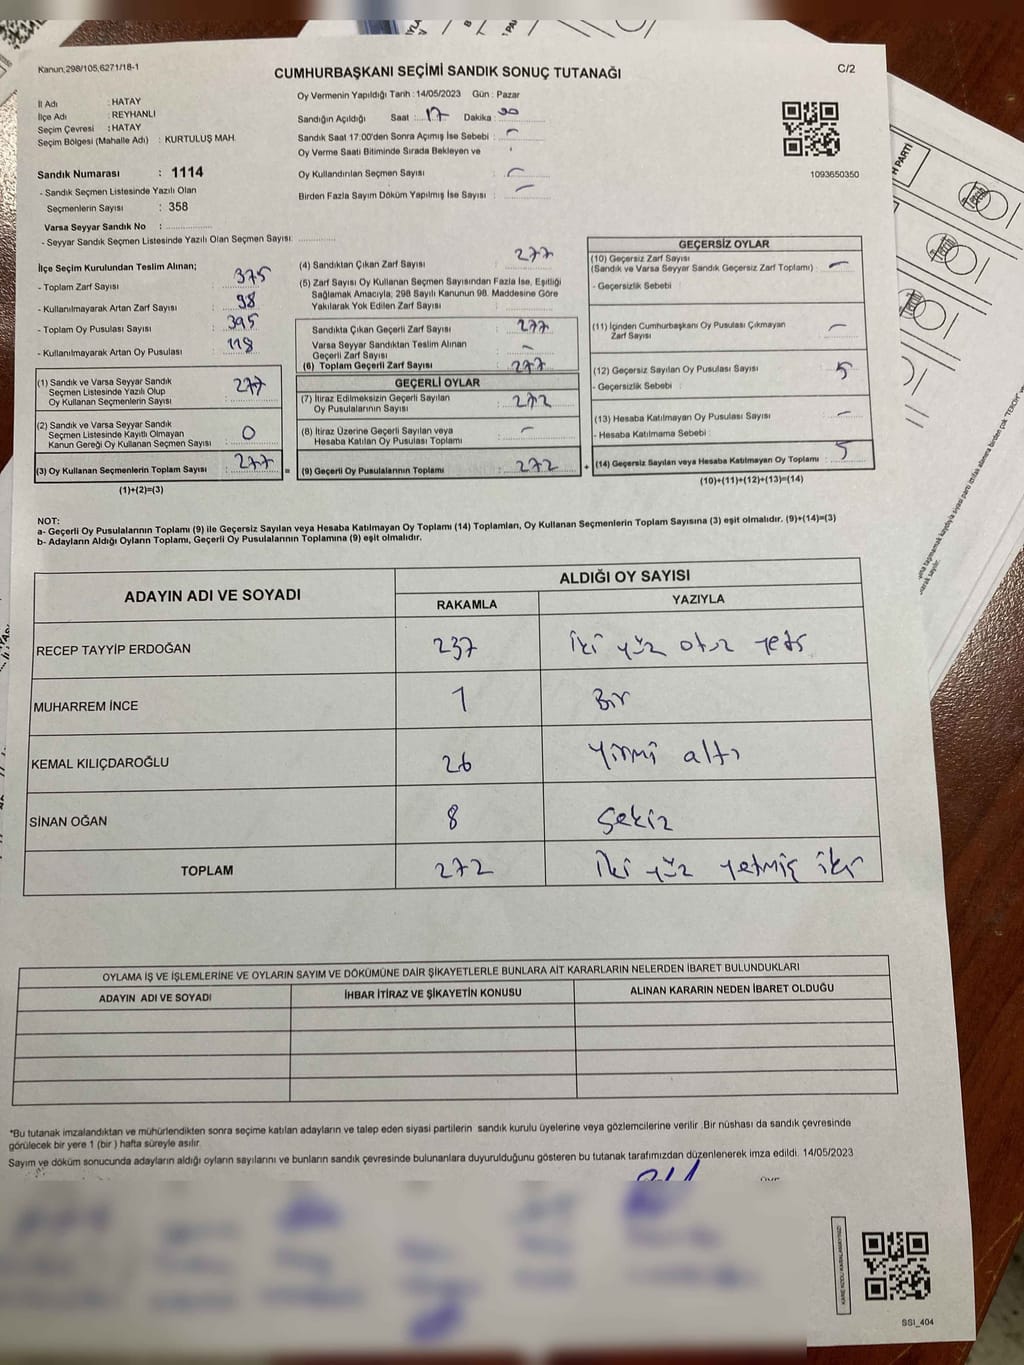 Kanun,298/105,6271/18-1
C/2
CUMHURBAŞKANI SEÇİMİ SANDIK SONUÇ TUTANAĞI
İl Adı : HATAY
İlçe Adı : REYHANLI
Seçim Çevresi : HATAY
Seçim Bölgesi (Mahalle Adı) : KURTULUŞ MAH.
Oy Vermenin Yapıldığı Tarih : 14/05/2023 Gün : Pazar
Sandığın Açıldığı Saat : 17 Dakika :
Sandık Saat 17:00'den Sonra Açımış İse Sebebi : –
Oy Verme Saati Bitiminde Sırada Bekleyen ve
Oy Kullandırılan Seçmen Sayısı : –
Birden Fazla Sayım Döküm Yapılmış İse Sayısı : –
1093650350
Sandık Numarası : 1114
- Sandık Seçmen Listesinde Yazılı Olan
Seçmenlerin Sayısı : 358
Varsa Seyyar Sandık No :
- Seyyar Sandık Seçmen Listesinde Yazılı Olan Seçmen Sayısı:
İlçe Seçim Kurulundan Teslim Alınan;
- Toplam Zarf Sayısı : 375
- Kullanılmayarak Artan Zarf Sayısı : 98
- Toplam Oy Pusulası Sayısı : 395
- Kullanılmayarak Artan Oy Pusulası : 118
(1) Sandık ve Varsa Seyyar Sandık
Seçmen Listesinde Yazılı Olup
Oy Kullanan Seçmenlerin Sayısı : 277
(2) Sandık ve Varsa Seyyar Sandık
Seçmen Listesinde Kayıtlı Olmayan
Kanun Gereği Oy Kullanan Seçmen Sayısı : 0
(3) Oy Kullanan Seçmenlerin Toplam Sayısı : 277 =
(1)+(2)=(3)
(4) Sandıktan Çıkan Zarf Sayısı : 277
(5) Zarf Sayısı Oy Kullanan Seçmen Sayısından Fazla İse, Eşitliği
Sağlamak Amacıyla, 298 Sayılı Kanunun 98. Maddesine Göre
Yakılarak Yok Edilen Zarf Sayısı :
Sandıkta Çıkan Geçerli Zarf Sayısı : 277
Varsa Seyyar Sandıktan Teslim Alınan
Geçerli Zarf Sayısı : –
(6) Toplam Geçerli Zarf Sayısı : 277
GEÇERLİ OYLAR
(7) İtiraz Edilmeksizin Geçerli Sayılan
Oy Pusulalarının Sayısı : 272
(8) İtiraz Üzerine Geçerli Sayılan veya
Hesaba Katılan Oy Pusulası Toplamı : –
(9) Geçerli Oy Pusulalarının Toplamı : 272 +
GEÇERSİZ OYLAR
(10) Geçersiz Zarf Sayısı
(Sandık ve Varsa Seyyar Sandık Geçersiz Zarf Toplamı) : –
- Geçersizlik Sebebi :
(11) İçinden Cumhurbaşkanı Oy Pusulası Çıkmayan
Zarf Sayısı : –
(12) Geçersiz Sayılan Oy Pusulası Sayısı : 5
- Geçersizlik Sebebi :
(13) Hesaba Katılmayan Oy Pusulası Sayısı : –
- Hesaba Katılmama Sebebi :
(14) Geçersiz Sayılan veya Hesaba Katılmayan Oy Toplamı : 5
(10)+(11)+(12)+(13)=(14)
NOT:
a- Geçerli Oy Pusulalarının Toplamı (9) ile Geçersiz Sayılan veya Hesaba Katılmayan Oy Toplamı (14) Toplamları, Oy Kullanan Seçmenlerin Toplam Sayısına (3) eşit olmalıdır. (9)+(14)=(3)
b- Adayların Aldığı Oyların Toplamı, Geçerli Oy Pusulalarının Toplamına (9) eşit olmalıdır.
ADAYIN ADI VE SOYADI
ALDIĞI OY SAYISI
RAKAMLA YAZIYLA
RECEP TAYYİP ERDOĞAN 237 iki yüz otuz yedi
MUHARREM İNCE 1 Bir
KEMAL KILIÇDAROĞLU 26 yirmi altı
SİNAN OĞAN 8 sekiz
TOPLAM 272 iki yüz yetmiş iki
OYLAMA İŞ VE İŞLEMLERİNE VE OYLARIN SAYIM VE DÖKÜMÜNE DAİR ŞİKAYETLERLE BUNLARA AİT KARARLARIN NELERDEN İBARET BULUNDUKLARI
ADAYIN ADI VE SOYADI İHBAR İTİRAZ VE ŞİKAYETİN KONUSU ALINAN KARARIN NEDEN İBARET OLDUĞU
*Bu tutanak imzalandıktan ve mühürlendikten sonra seçime katılan adayların ve talep eden siyasi partilerin sandık kurulu üyelerine veya gözlemcilerine verilir .Bir nüshası da sandık çevresinde
görülecek bir yere 1 (bir ) hafta süreyle asılır.
Sayım ve döküm sonucunda adayların aldığı oyların sayılarını ve bunların sandık çevresinde bulunanlara duyurulduğunu gösteren bu tutanak tarafımızdan düzenlenerek imza edildi. 14/05/2023
SSI_404